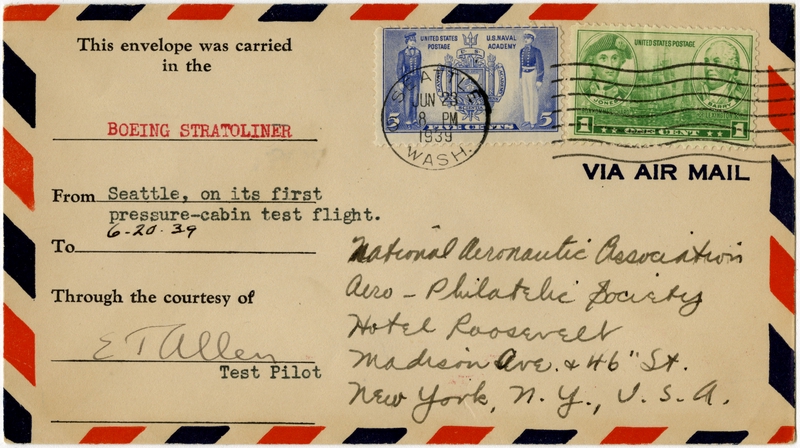 This envelope was carried
in the
BOEING STRATOLINER
From Seattle, on its first
pressure-cabin test flight.
6-20-39
To
Through the courtesy of
E T Allen
Test Pilot
UNITED STATES POSTAGE
U.S. NAVAL ACADEMY
5 FIVE CENTS 5
SEATTLE
JUN 23
8 PM
1939
WASH.
UNITED STATES POSTAGE
JONES
BARRY
1 ONE CENT 1
VIA AIR MAIL
National Aeronautic Association
Aero-Philatelic Society
Hotel Roosevelt
Madison Ave. & 46" St.
New York, N. Y., U. S. A.